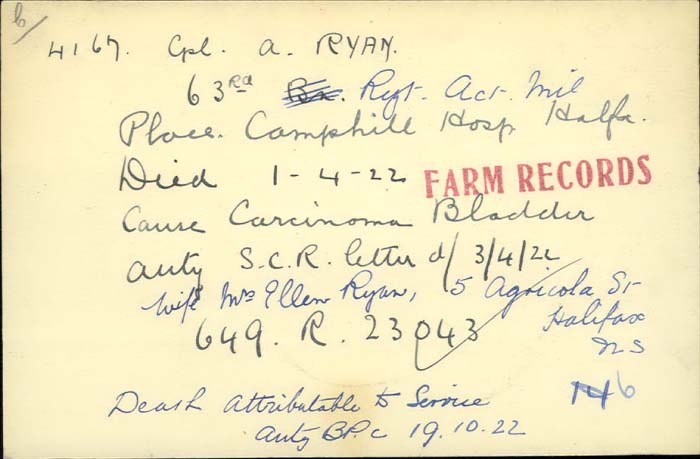 6/
4167. Cpl. A. RYAN.
63rd Bn. Regt. Act. Mil
Place. Camphill Hosp. Halfa.
Died 1-4-22
FARM RECORDS
Cause Carcinoma Bladder
Auty S.C.R. letter d/ 3/4/22
Wife Mrs Ellen Ryan, 5 Agricola St
Halifax
NS
649. R. 23043
Death attributable to Service
Auty B.P.C 19.10.22
6